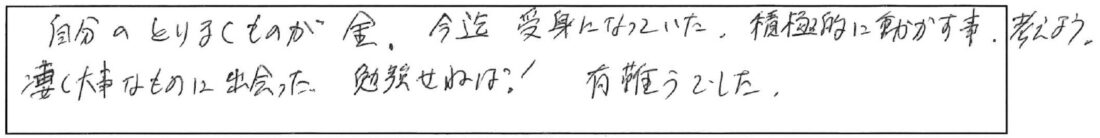 自分のとりまくものが金。今迄受身になっていた。積極的に動かす事。考えよう。
凄く大事なものに出会った 勉強せねば！ 有難うでした。